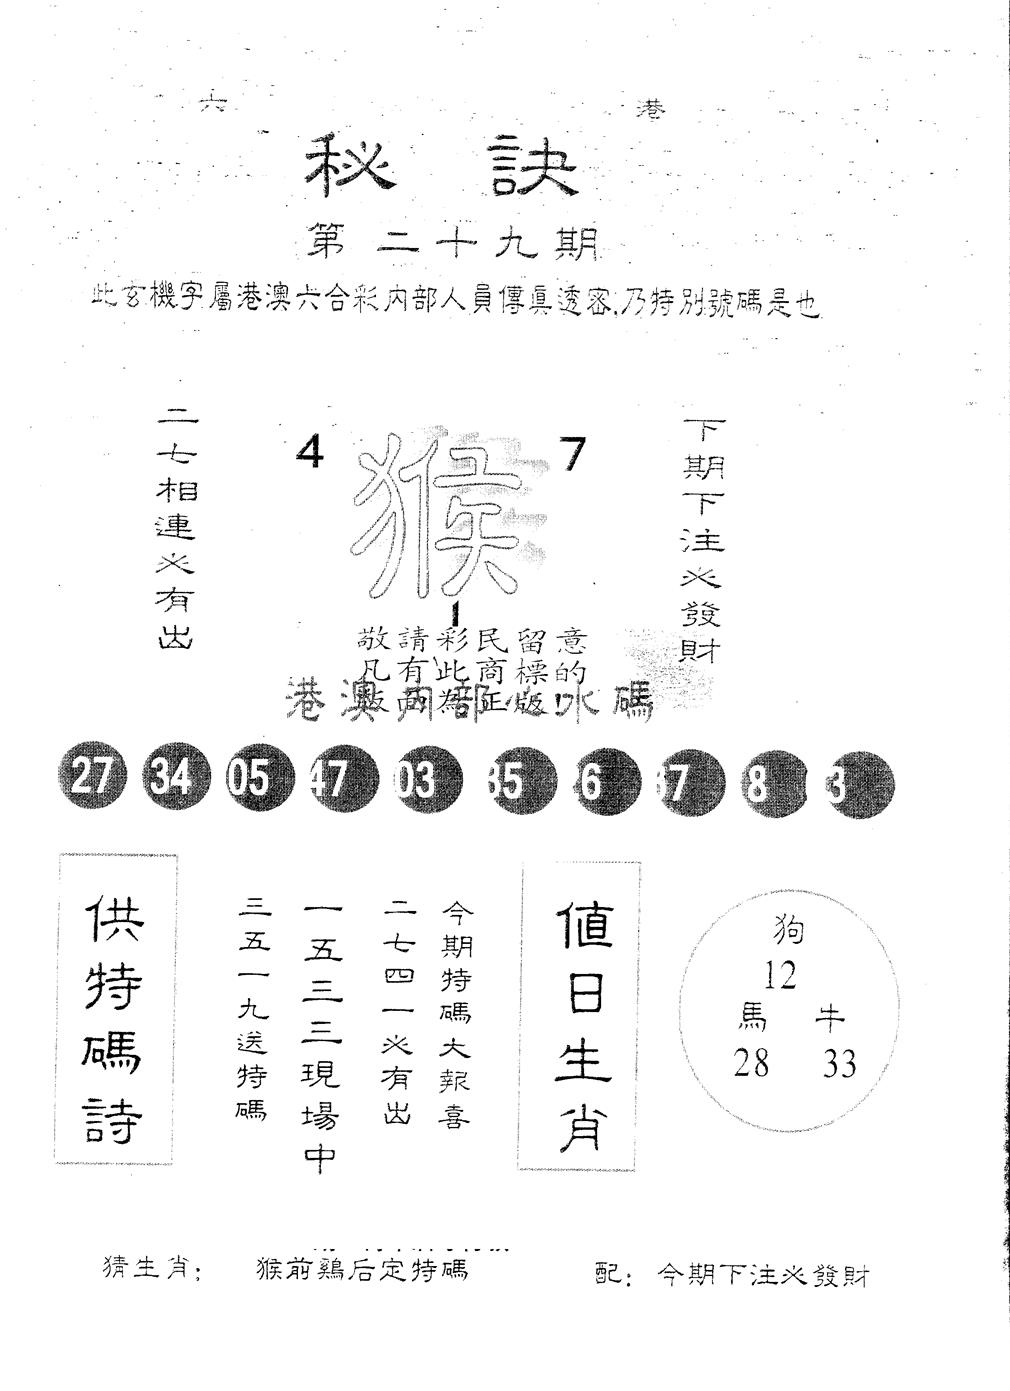 六 港
秘 訣
第二十九期
此玄機字屬港澳六合彩內部人員傳真透密,乃特別號碼是也
二七相連必有出
4 猴 7
1
下期下注必發財
敬請彩民留意
凡有此商標的
為正版!
港澳內部心水碼
27 34 05 47 03 35 6 37 8 3
供特碼詩
今期特碼大報喜
二七四一必有出
一五三三現場中
三五一九送特碼
值日生肖
狗
12
馬 牛
28 33
猜生肖: 猴前鷄后定特碼 配: 今期下注必發財